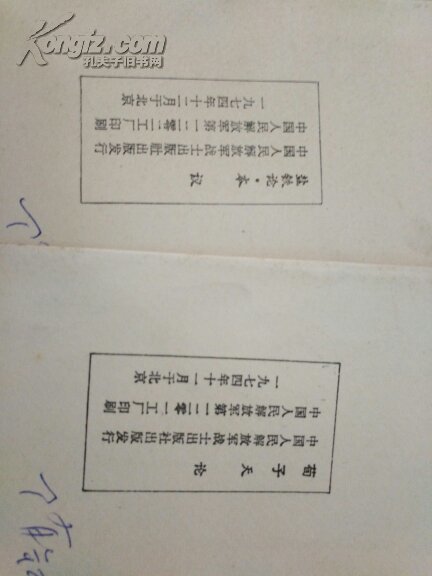 Kongfz.com
孔夫子旧书网
盐铁论·本议
中国人民解放军战士出版社出版发行
中国人民解放军第一二零一工厂印刷
一九七四年十二月于北京
荀子天论
中国人民解放军战士出版社出版发行
中国人民解放军第一二零一工厂印刷
一九七四年十一月于北京